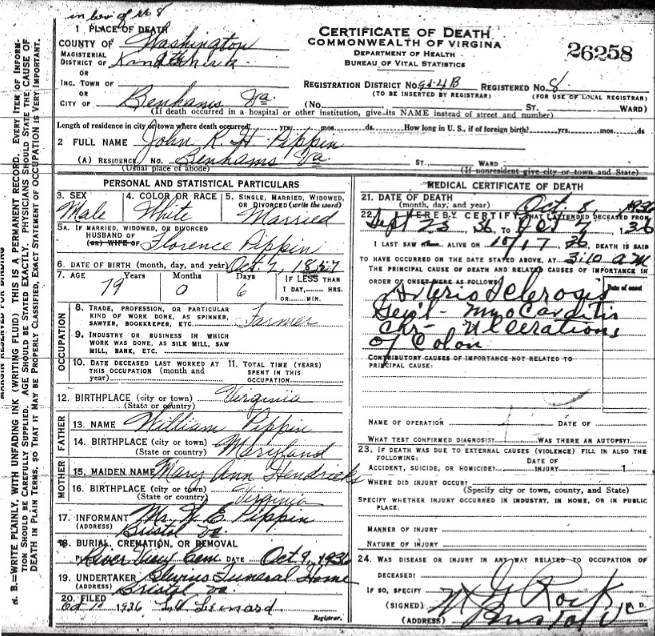 in lieu of # 8
1 PLACE OF DEATH
COUNTY OF Washington
MAGISTERIAL
DISTRICT OF
OR
INC. TOWN OF
OR
CITY OF Benhams Va.
CERTIFICATE OF DEATH
COMMONWEALTH OF VIRGINIA
DEPARTMENT OF HEALTH
BUREAU OF VITAL STATISTICS
26258
REGISTRATION DISTRICT NO. 954B REGISTERED NO. 8
(TO BE INSERTED BY REGISTRAR) (FOR USE OF LOCAL REGISTRAR)
(No. ST. WARD)
(If death occurred in a hospital or other institution, give its NAME instead of street and number)
Length of residence in city or town where death occurred yrs. mos. ds. How long in U. S., if of foreign birth? yrs. mos. ds.
2 FULL NAME John R. H. Pippin
(A) RESIDENCE. No. Benhams Va ST. WARD
(Usual place of abode) (If nonresident give city or town and State)
PERSONAL AND STATISTICAL PARTICULARS
3. SEX 4. COLOR OR RACE 5. SINGLE, MARRIED, WIDOWED, OR DIVORCED (write the word)
Male White Married
5A. IF MARRIED, WIDOWED, OR DIVORCED
HUSBAND OF
(OR) WIFE OF Florence Pippin
6. DATE OF BIRTH (month, day, and year) Oct 2, 1857
7. AGE Years Months Days IF LESS THAN
79 0 6 1 DAY, HRS.
OR MIN.
OCCUPATION
8. TRADE, PROFESSION, OR PARTICULAR
KIND OF WORK DONE, AS SPINNER,
SAWYER, BOOKKEEPER, ETC. Farmer
9. INDUSTRY OR BUSINESS IN WHICH
WORK WAS DONE, AS SILK MILL, SAW
MILL, BANK, ETC.
10. DATE DECEASED LAST WORKED AT 11. TOTAL TIME (YEARS)
THIS OCCUPATION (month and SPENT IN THIS
year) OCCUPATION
12. BIRTHPLACE (city or town) Virginia
(State or country)
FATHER
13. NAME William Pippin
14. BIRTHPLACE (city or town) Maryland
(State or country)
MOTHER
15. MAIDEN NAME Mary Ann Hendricks
16. BIRTHPLACE (city or town)
(State or country) Virginia
17. INFORMANT Mr. W. E. Pippin
(ADDRESS) Bristol Va
18. BURIAL, CREMATION, OR REMOVAL
River View Cem DATE Oct 9, 1936
19. UNDERTAKER Funeral Home
(ADDRESS) Bristol Va.
20. FILED 1936 Leonard
Registrar.
MEDICAL CERTIFICATE OF DEATH
21. DATE OF DEATH
(month, day, and year) Oct 8, 1936
22. I HEREBY CERTIFY THAT I ATTENDED DECEASED FROM
Sept 23 36 TO Oct 7 36
I LAST SAW ALIVE ON 10/7 36, DEATH IS SAID
TO HAVE OCCURRED ON THE DATE STATED ABOVE, AT 3:10 A.M.
THE PRINCIPAL CAUSE OF DEATH AND RELATED CAUSES OF IMPORTANCE IN
ORDER OF ONSET WERE AS FOLLOWS: Date of onset
Arterio Sclerosis
Myocarditis
Chr- Ulcerations
of Colon
CONTRIBUTORY CAUSES OF IMPORTANCE NOT RELATED TO
PRINCIPAL CAUSE:
NAME OF OPERATION DATE OF
WHAT TEST CONFIRMED DIAGNOSIS? WAS THERE AN AUTOPSY?
23. IF DEATH WAS DUE TO EXTERNAL CAUSES (VIOLENCE) FILL IN ALSO THE
FOLLOWING: DATE OF
ACCIDENT, SUICIDE, OR HOMICIDE? INJURY 1
WHERE DID INJURY OCCUR?
(Specify city or town, county, and State)
SPECIFY WHETHER INJURY OCCURRED IN INDUSTRY, IN HOME, OR IN PUBLIC
PLACE.
MANNER OF INJURY
NATURE OF INJURY
24. WAS DISEASE OR INJURY IN ANY WAY RELATED TO OCCUPATION OF
DECEASED?
IF SO, SPECIFY
(SIGNED) Rock M.D.
(ADDRESS) Bristol Va
N. B.—WRITE PLAINLY, WITH UNFADING INK (WRITING FLUID). THIS IS A PERMANENT RECORD. EVERY ITEM OF INFORMATION
SHOULD BE CAREFULLY SUPPLIED. AGE SHOULD BE STATED EXACTLY. PHYSICIANS SHOULD STATE THE CAUSE OF
DEATH IN PLAIN TERMS, SO THAT IT MAY BE PROPERLY CLASSIFIED. EXACT STATEMENT OF OCCUPATION IS VERY IMPORTANT.